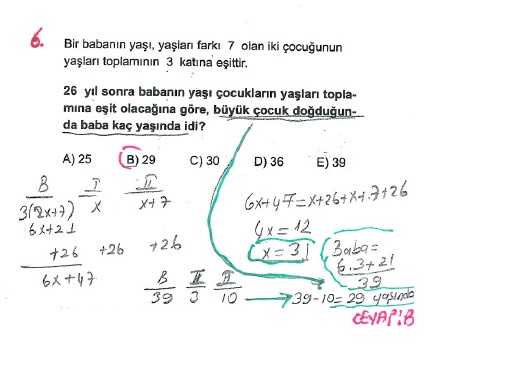 6.
Bir babanın yaşı, yaşları farkı 7 olan iki çocuğunun
yaşları toplamının 3 katına eşittir.
26 yıl sonra babanın yaşı çocukların yaşları topla-
mına eşit olacağına göre, büyük çocuk doğduğun-
da baba kaç yaşında idi?
A) 25 B) 29 C) 30 D) 36 E) 39
B I II
3(2x+7) x x+7
6x+21
+26 +26 +26
6x+47
6x+47=x+26+x+7+26
4x=12
x=3
Baba=
6.3+21
39
B II II
39 3 10
39-10=29 yaşında
CEVAP:B